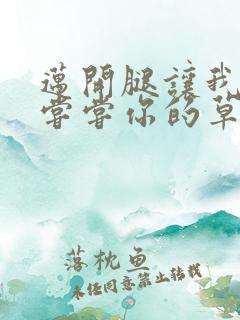 邁開腿讓我
嘗嘗你的草
落枕鱼
未经同意禁止转载